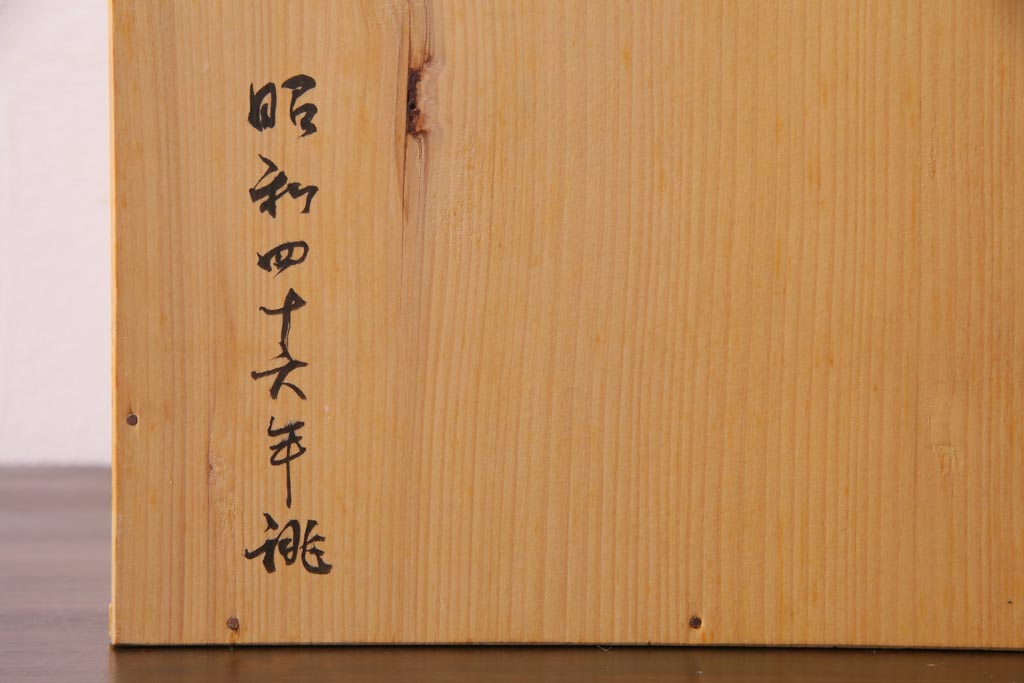 昭和四十六年誂